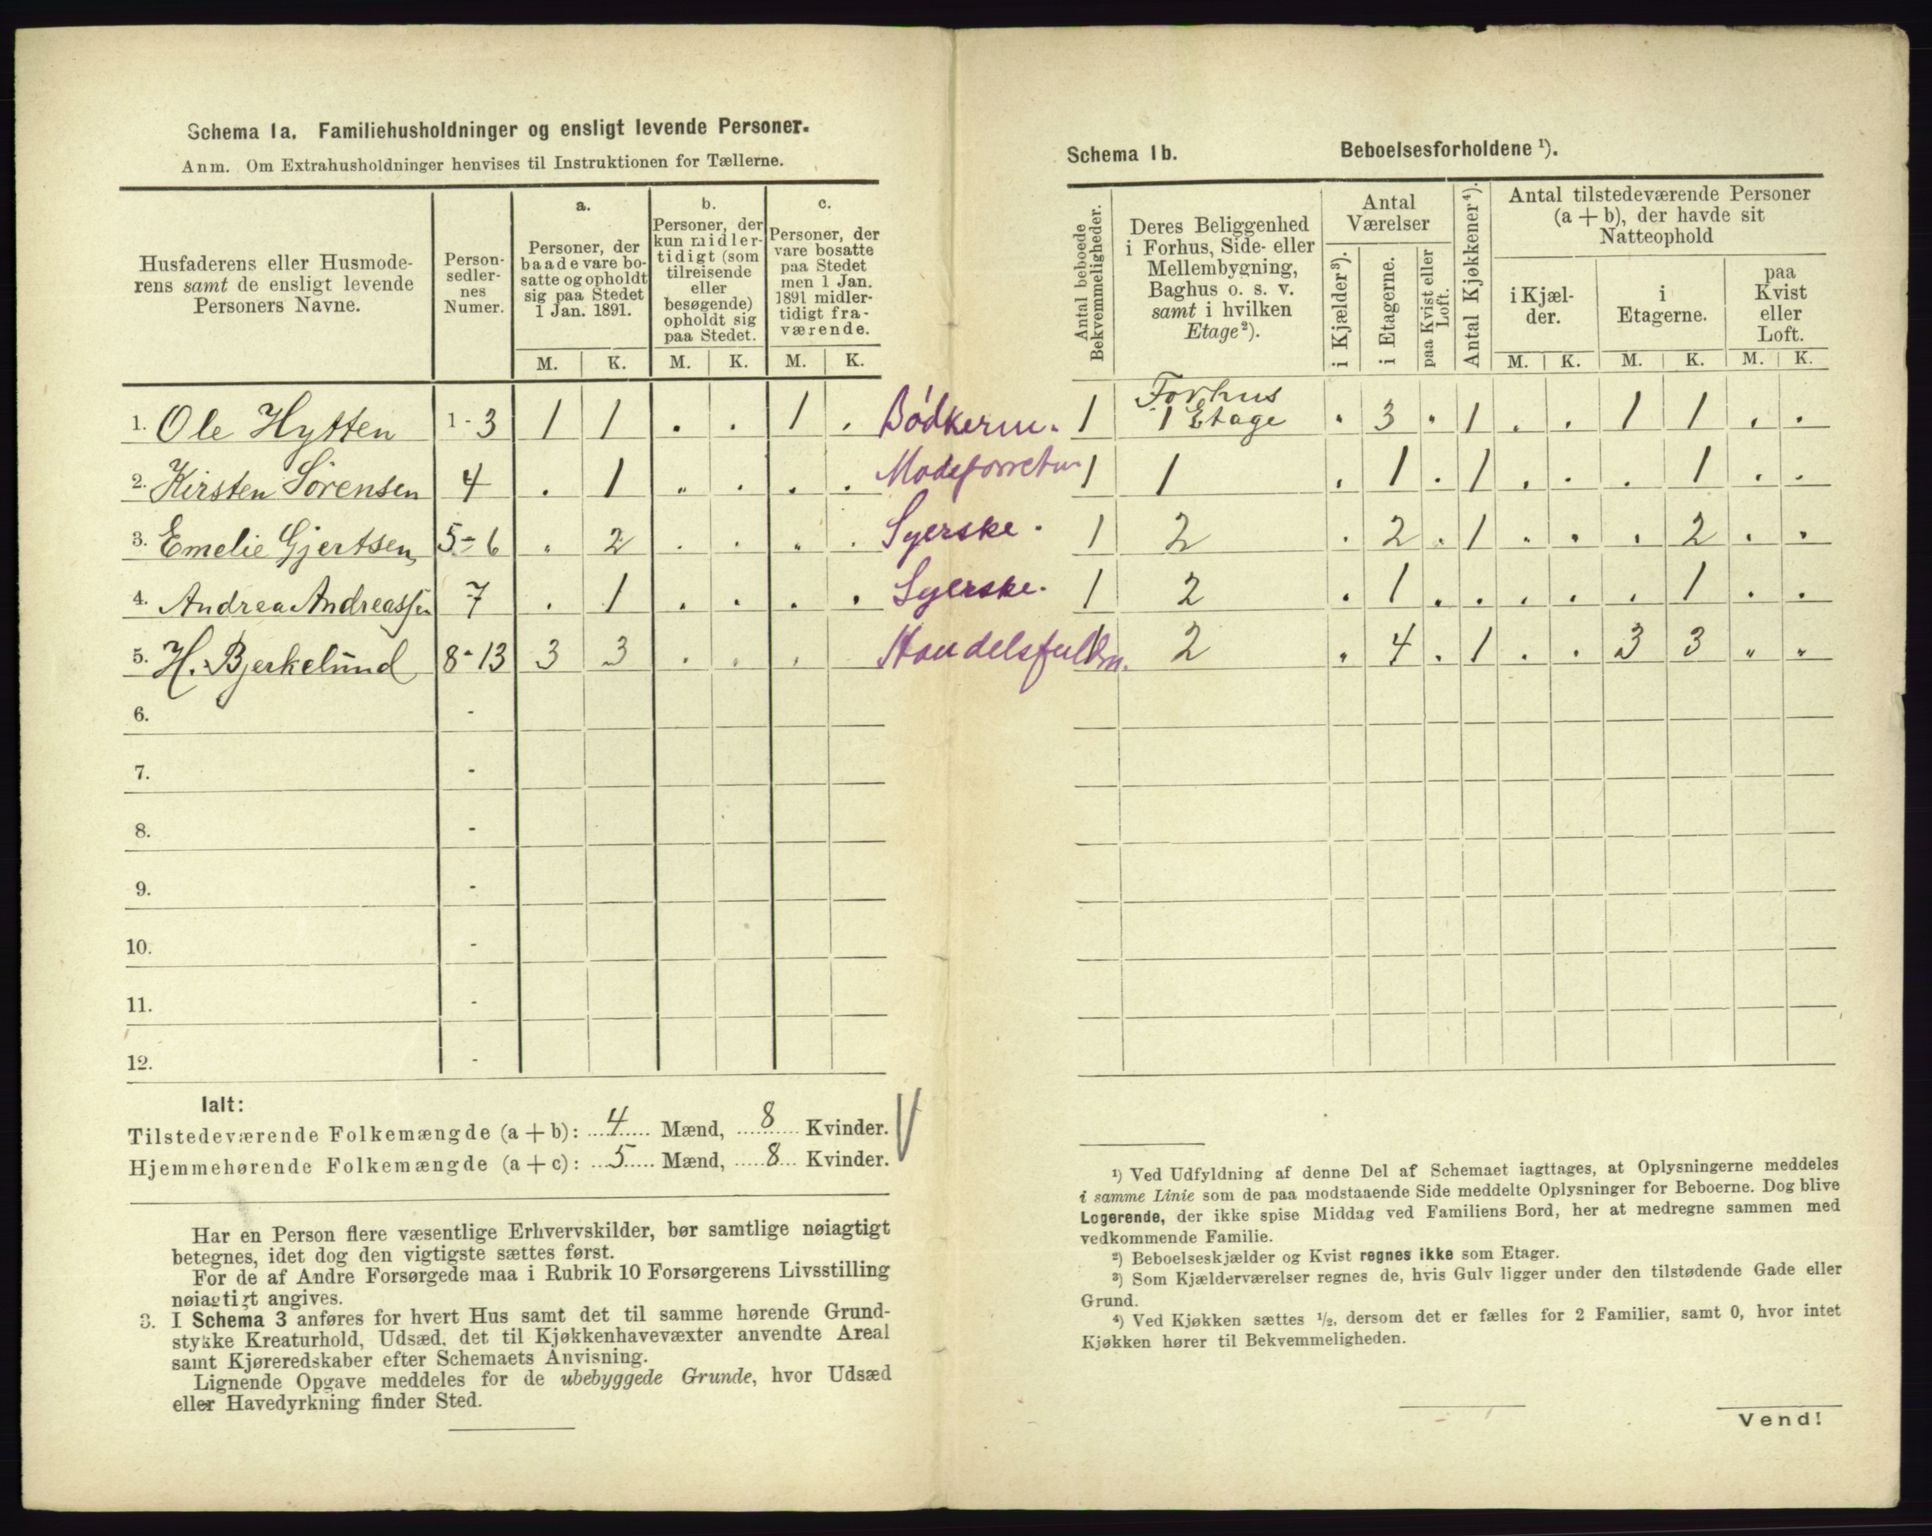 Schema 1a. Familiehusholdninger og ensligt levende Personer.
Anm. Om Extrahusholdninger henvises til Instruktionen for Tællerne.
Husfaderens eller Husmode-
rens samt de ensligt levende
Personers Navne.
Person-
sedler-
nes
Numer.
a.
Personer, der
baade vare bo-
satte og opholdt
sig paa Stedet
1 Jan. 1891.
b.
Personer, der
kun midler-
tidigt (som
tilreisende
eller
besøgende)
opholdt sig
paa Stedet.
c.
Personer, der
vare bosatte
paa Stedet
men 1 Jan.
1891 midler-
tidigt fra-
værende.
M. K. M. K. M. K.
1. Ole Hytten 1-3 1 1 . . 1 . Bödkerm.
2. Kirsten Sörensen 4 . 1 " . . . Modeforretn
3. Emelie Gjertsen 5-6 . 2 . . " . Syerske.
4. Andrea Andreassen 7 . 1 . . . . Syerske.
5. H. Bjerkelund 8-13 3 3 . . . Handelsfuldm.
6. -
7. -
8. -
9. -
10. -
11. -
12. -
Ialt:
Tilstedeværende Folkemængde (a + b): 4 Mænd, 8 Kvinder.
Hjemmehørende Folkemængde (a + c): 5 Mænd, 8 Kvinder.
Har en Person flere væsentlige Erhvervskilder, bør samtlige nøiagtigt
betegnes, idet dog den vigtigste sættes først.
For de af Andre Forsørgede maa i Rubrik 10 Forsørgerens Livsstilling
nøiagtigt angives.
3. I Schema 3 anføres for hvert Hus samt det til samme hørende Grund-
stykke Kreaturhold, Udsæd, det til Kjøkkenhavevæxter anvendte Areal
samt Kjøreredskaber efter Schemaets Anvisning.
Lignende Opgave meddeles for de ubebyggede Grunde, hvor Udsæd
eller Havedyrkning finder Sted.
Schema 1b. Beboelsesforholdene ¹).
Antal beboede
Bekvemmeligheder.
Deres Beliggenhed
i Forhus, Side- eller
Mellembygning,
Baghus o. s. v.
samt i hvilken
Etage²).
Antal
Værelser
i Kjælder³).
i Etagerne.
paa Kvist eller
Loft.
Antal Kjøkkener⁴).
Antal tilstedeværende Personer
(a + b), der havde sit
Natteophold
i Kjæl-
der.
i
Etagerne.
paa
Kvist
eller
Loft.
M. K. M. K. M. K.
Forhus
1 1 Etage . 3 . 1 . . 1 1 . .
1 1 . 1 . 1 . . . 1 . .
1 2 . 2 . 1 . . . 2 . .
1 2 . 1 . . . . . 1 . .
1 2 . 4 . 1 . . 3 3 " "
¹) Ved Udfyldning af denne Del af Schemaet iagttages, at Oplysningerne meddeles
i samme Linie som de paa modstaaende Side meddelte Oplysninger for Beboerne. Dog blive
Logerende, der ikke spise Middag ved Familiens Bord, her at medregne sammen med
vedkommende Familie.
²) Beboelseskjælder og Kvist regnes ikke som Etager.
³) Som Kjælderværelser regnes de, hvis Gulv ligger under den tilstødende Gade eller
Grund.
⁴) Ved Kjøkken sættes ½, dersom det er fælles for 2 Familier, samt 0, hvor intet
Kjøkken hører til Bekvemmeligheden.
Vend!